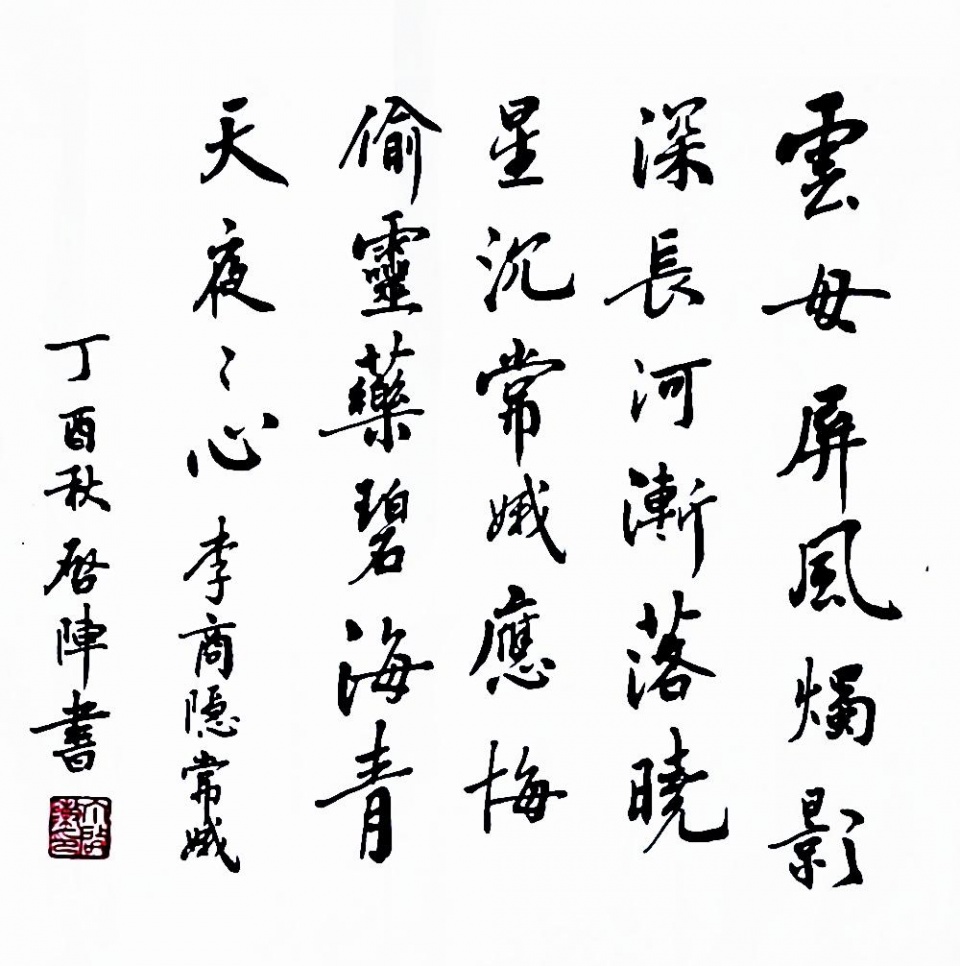 雲母屏風燭影
深長河漸落曉
星沉常娥應悔
偷靈藥碧海青
天夜〻心 李商隱常娥
丁酉秋 啓陣書